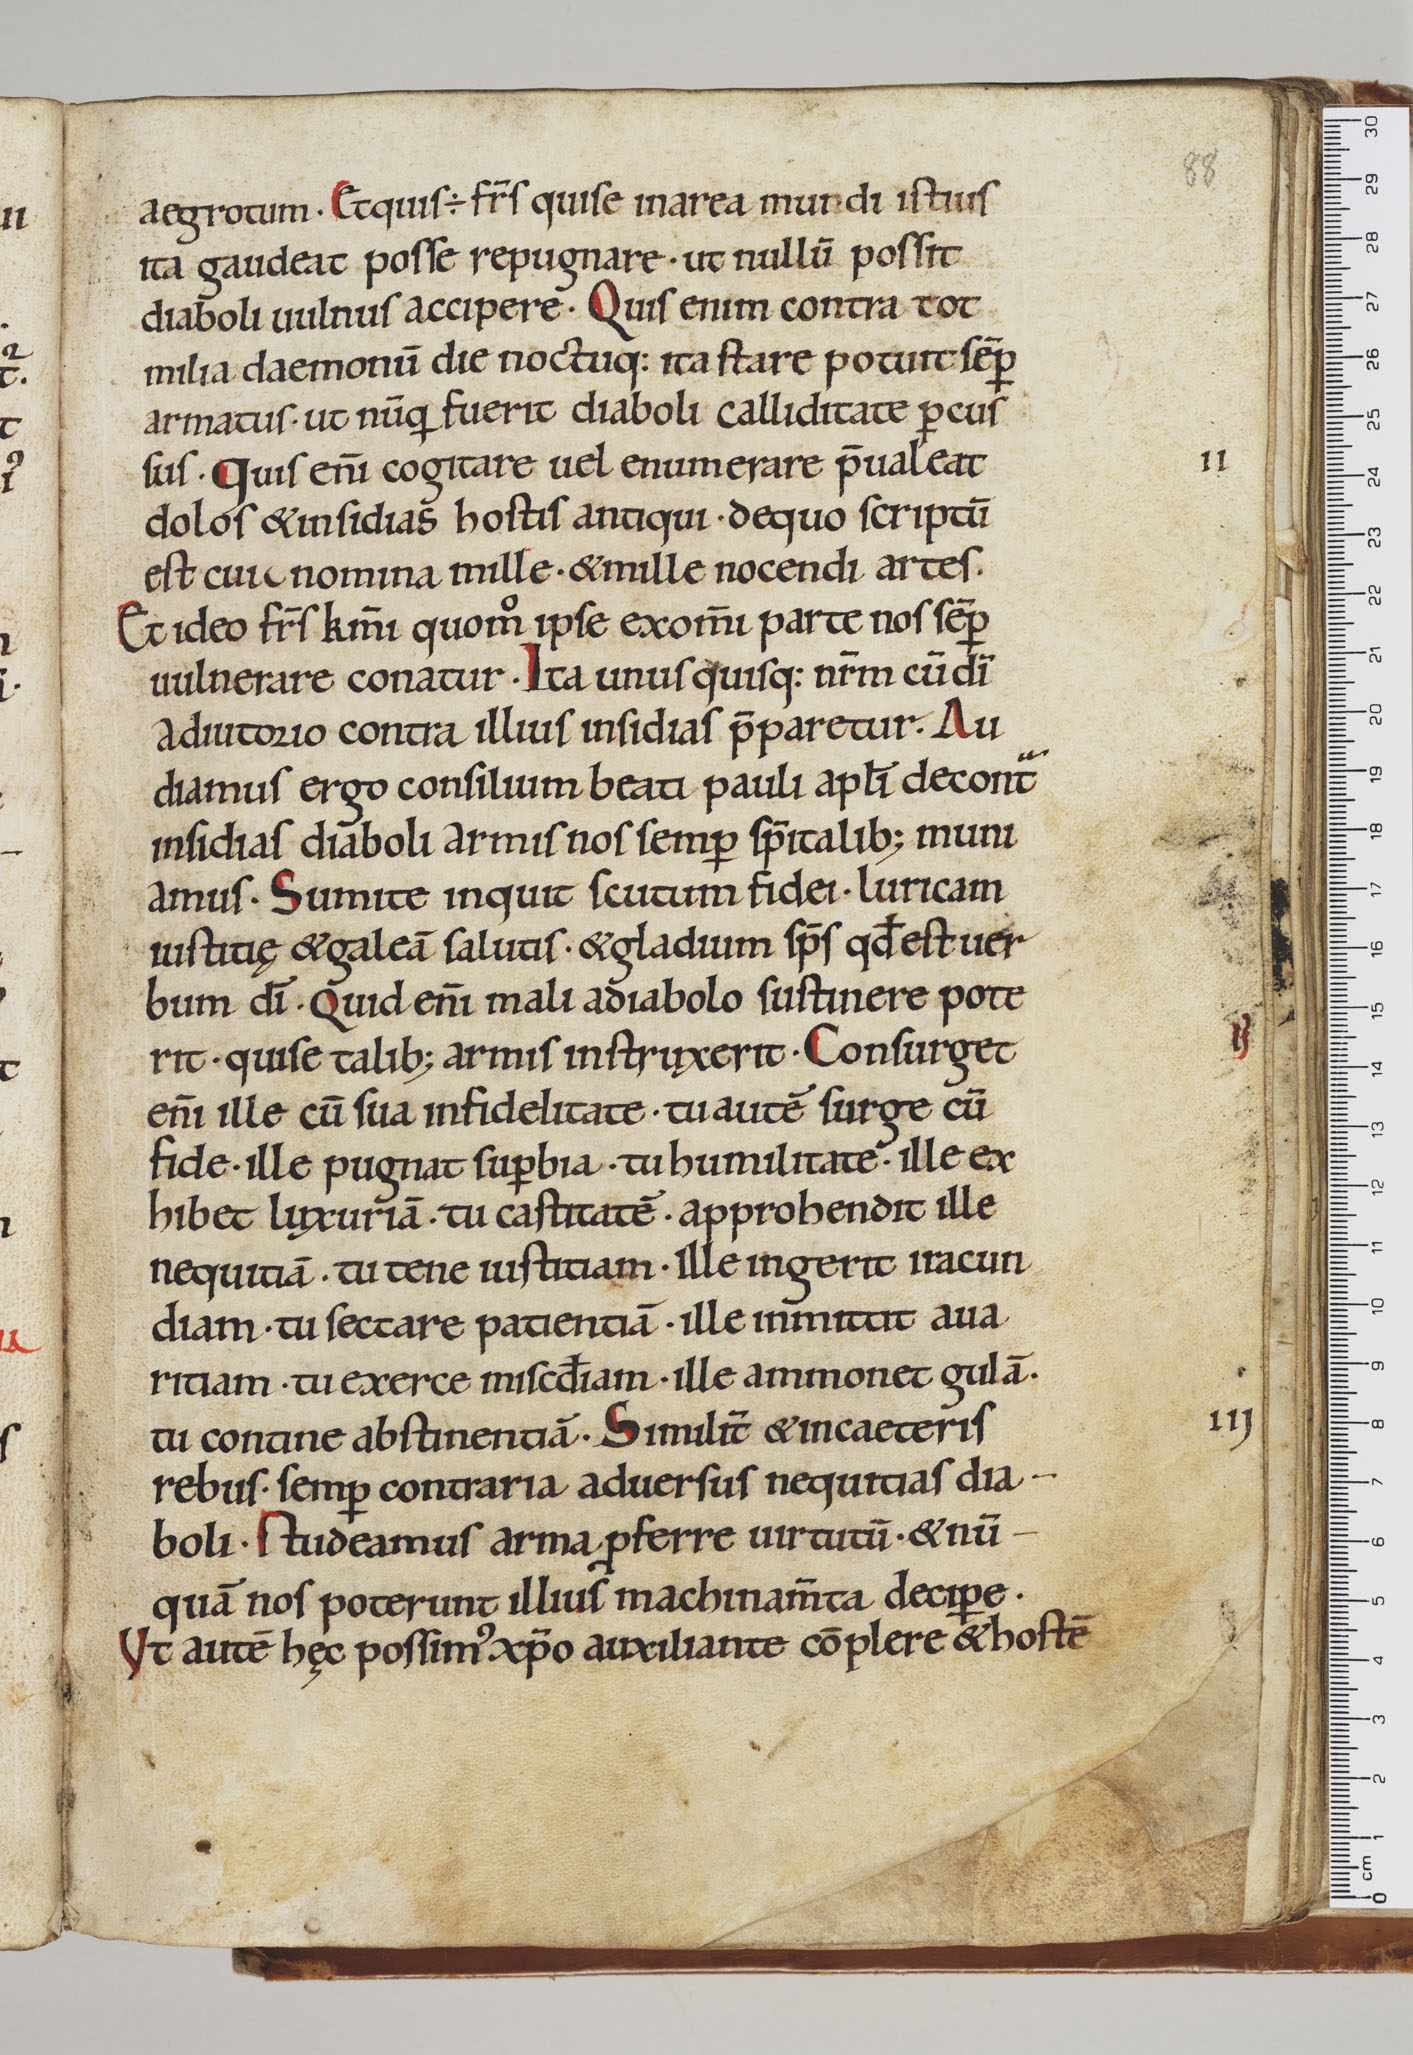 88
aegrotum · Et quis ÷ fr̄s quise inarea mundi istius
ita gaudeat posse repugnare · ut nullū possit
diaboli uulnus accipere · Quis enim contra tot
milia daemonū die noctuq: ita stare potuit sēp̱
armatus · ut nūq̱ fuerit diaboli calliditate ꝑcus
sus · Quis en̄i cogitare uel enumerare p̄ualeat
II
dolos &insidias hostis antiqui · dequo scriptū
est cui nomina mille · &mille nocendi artes.
Et ideo fr̄s km̄i quom̊ ipse exom̄i parte nos sēp̱
uulnerare conatur · Ita unusquisq: nr̄m cū dī
adiutorio contra illius insidias p̄paretur. Au
diamus ergo consilium beati pauli apl̄i decont̄
insidias diaboli armis nos semꝑ sp̄italib; muni
amus · Sumite inquit scutum fidei · luricam
iustitię &galeā salutis · &gladium sp̄s qd̄ est uer
bum dī · Quid en̄i mali adiabolo sustinere pote
rit · quise talib; armis instruxerit · Consurget
en̄i ille cū sua infidelitate · tu autē surge cū
fide · ille pugnat suꝑbia · tu humilitate · ille ex
hibet luxuriā · tu castitatē · approhendit ille
nequitiā · tu tene iustitiam · ille ingerit iracun
diam · tu sectare patientiā · ille inmittit aua
ritiam · tu exerce miscd̄iam · ille ammonet gulā.
tu contine abstinentiā · Similit̄ &incaeteris
III
rebus · semꝑ contraria aduersus nequitias dia-
boli · studeamus arma ꝓferre uirtutū · &nū-
quā nos poterunt illius machinam̄ta deciꝑe ·
Vt autē hęc possim⁹ xp̄o auxiliante cōplere &hostē